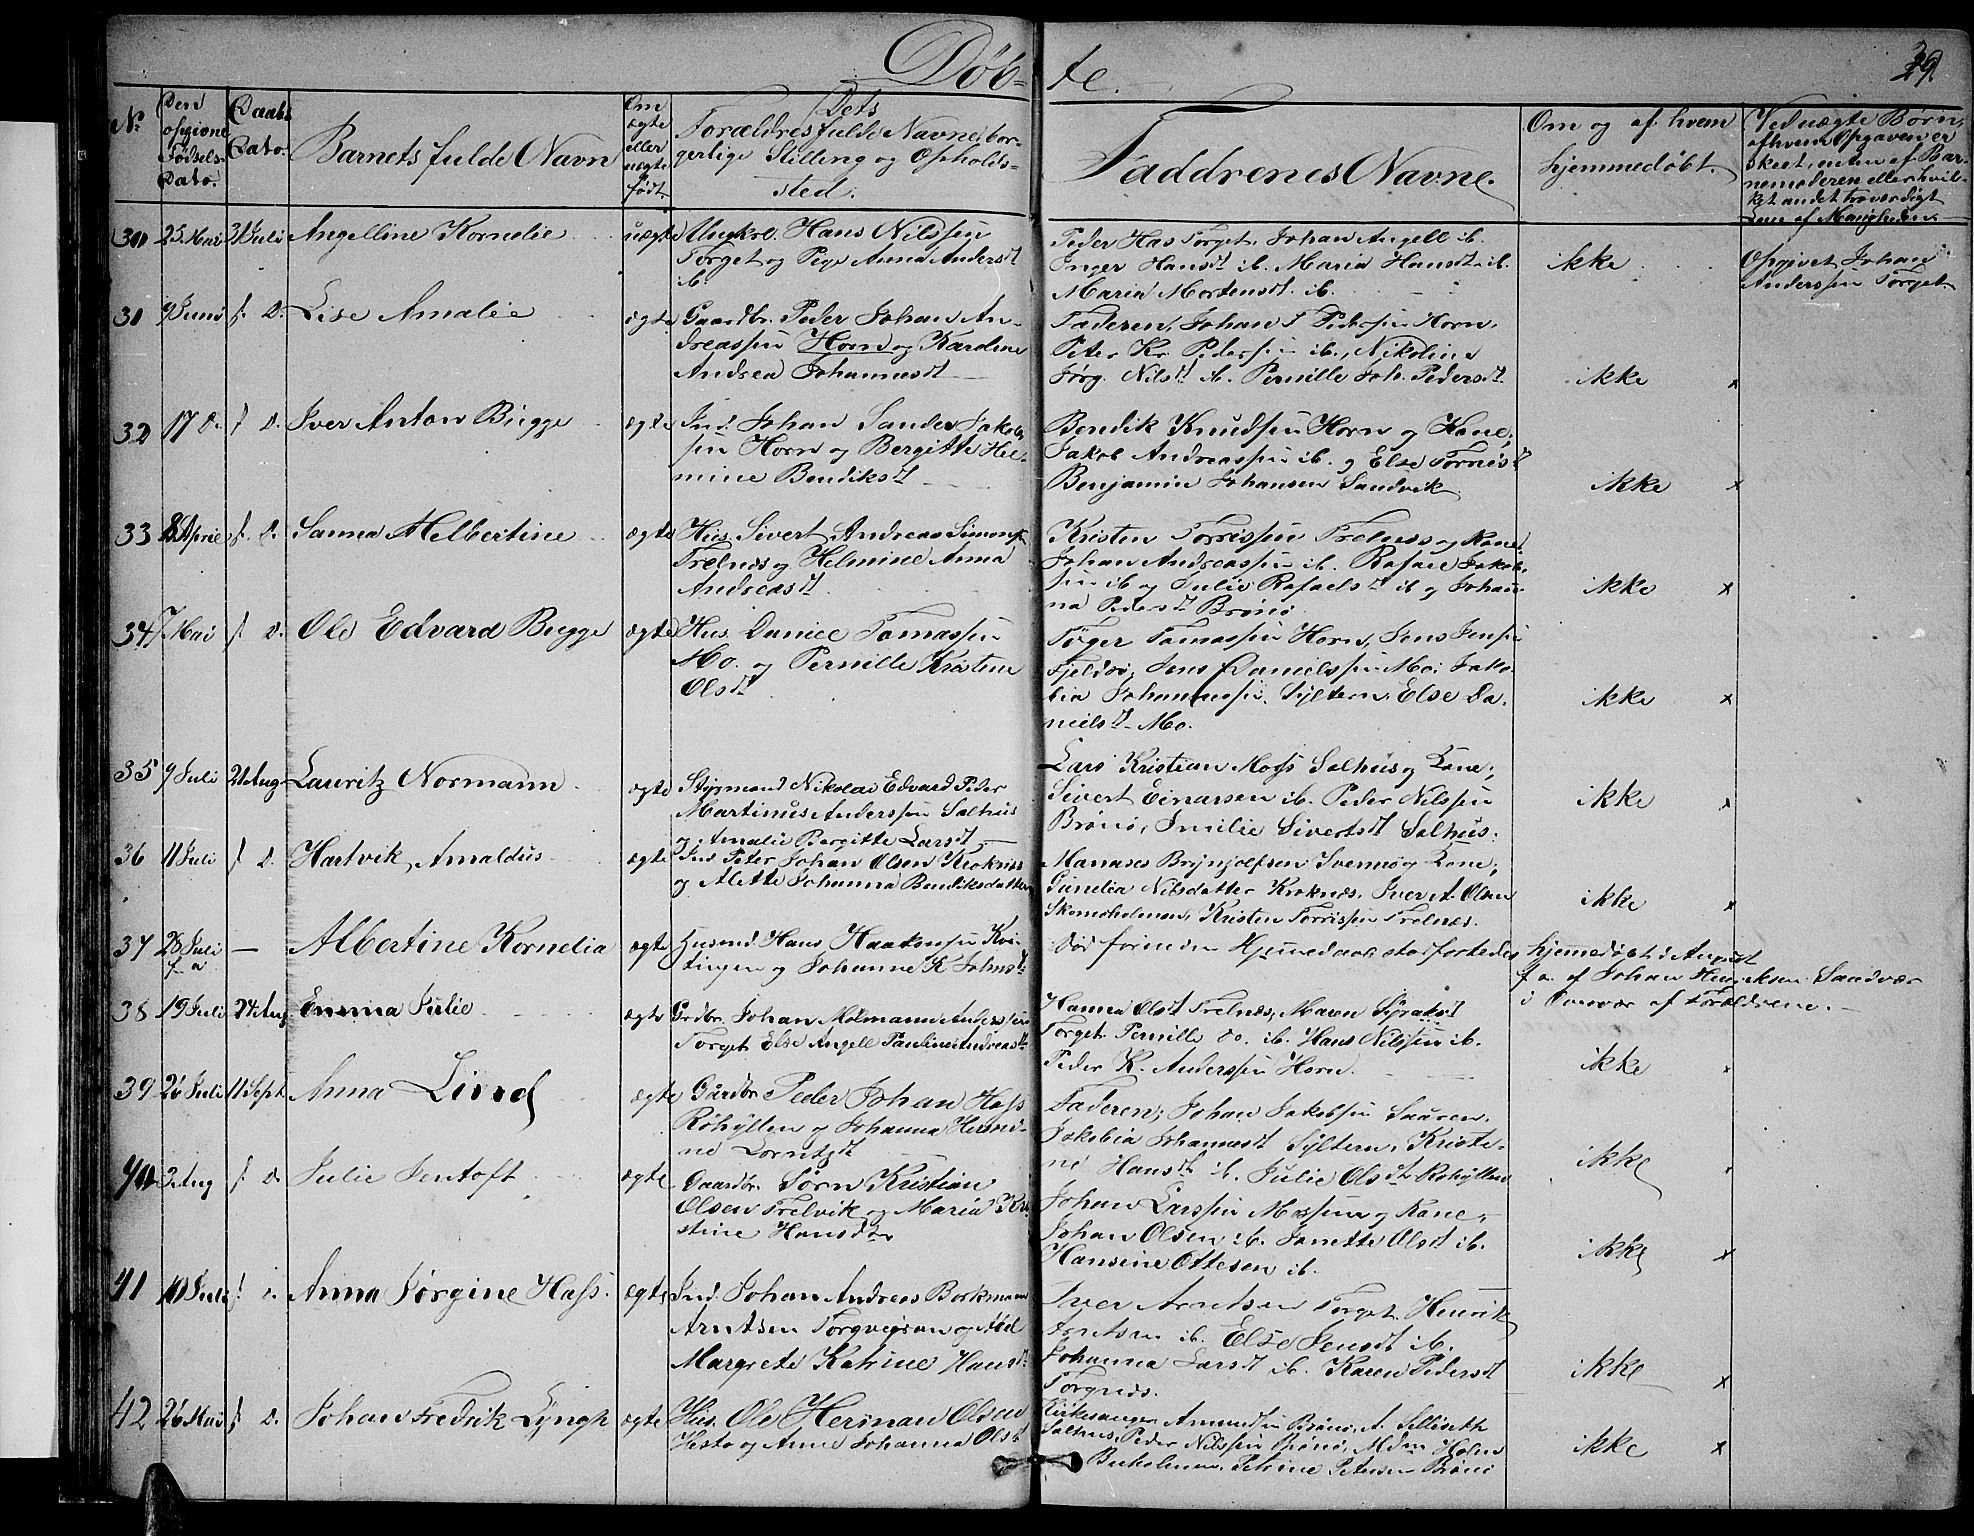 Døb- te.
29.
No
Den opgivne Fødsels-Dato.
Daabs Dato.
Barnets fulde Navn
Om ægte eller uægte født.
Dets Forældres fulde Navne, borgerlige Stilling og Opholds-sted.
Faddrenes Navne.
Om og af hvem hjemmedøbt.
Ved uægte Børn, af hvem Opgaven er skeet, enten af Barnemoderen eller hvilket andet troværdigt
30 25 Mai 31 Juli Angelline Kornelie uægte Ungkrl. Hans Nilssen
Torget og Pige Anna Andersdt
ib.
Peder Has Torget, Johan Angell ib.
Inger Hansdt ib. Maria Hansdt ib.
Maria Mortensdt. ib.
ikke
Opgivet Johan
Anderssen Torget
31 9 Juni s. D. Lise Amalie ægte Gaardbr. Peder Johan An-
dreassen Horn og Karoline
Andrea Johannesdt
Faderen, Johan P Pederssen Horn,
Peter Kr Pederssen ib., Nikoline
Jørg. Nilsdt ib. Pernille Joh. Pedersdt.
ikke x
32 17 D. s D. Iver Anton Bugge ægte Ind. Johan Sander Jakob-
sen Horn og Bergitte Hel-
mine Bendiksdt
Bendik Knudssen Horn og Kone,
Jakob Andreassen ib. og Else Tornesdt
Benjamin Johansen Sandvik
ikke x
33 8 April s. D. Sanna Helbertine ægte Hus. Sivert Andreas Simons.
Trelnes og Helmine Anna
Andreasdt
Kristen Torrissen Trelnes og Kone,
Johan Andreassen ib. Rafael Jakob-
sen ib og Julie Rafaelsdt ib og Johan-
na Pedersdt Brønø.
ikke x
34 7 Mai s D. Ole Edvard Bugge ægte Hus. Daniel Tomassen
Mo. og Pernille Kristine
Olsdt
Tøger Tomassen Horn, Jens Jenssen
Fjeldsø, Jens Danielssen Mo. Jako-
bia Johannessen. Sylten. Else Da-
nielsdt Mo.
ikke x
35 9 Juli 21 Aug Lauritz Normann ægte Styrmand Nikolai Edvard Peder
Martinus Anderssen Salhus
og Amalie Bergitte Larsdt
Lars Kristian Moss Salhus og Kone,
Sivert Einarsen ib. Peder Nilssen
Brønø, Emilie Sivertsdt Salhus.
ikke x
36 11 Juli s D. Hartvik Amaldus ægte Ind Peter Johan Olsen Kroknes
og Alette Johanna Bendiksdatter
Manases Brynjolfsen Svennø og Kone,
Gunelia Nilsdatter Kroknes, Iver A. Olsen
Skomoholmen, Kristen Torrissen Trelnes.
ikke x
37 28 Juli f a — Albertine Kornelia ægte Husmd. Hans Haakenssen Kvi-
tingen og Johanne K Johnsdt
Død forinden Hjemmedaab stadfæstedes
hjemmedøbt i August
f. a. af Johan Henriksen Sandvær
i Overvær af Forældrene.
38 19 Juli 24 Aug Emma Julie ægte Grdbr. Johan Molmann Anderssen
Torget Else Angell Pauline Andreasdt
Hanna Olsdt Trelnes, Maren Syraksdt
Torget Pernille do. ib. Hans Nilssen ib.
Peder K. Anderssen Horn.
ikke
39 26 Juli 11 Sept. Anna Lind ægte Gårdbr Peder Johan Hass
Røhylten og Johanna Hermi-
ne Lorntzdt
Faderen, Johan Jakobssen Sauren,
Jakobia Johannesdt Syltern, Kristi-
ne Hansdt ib. Julie Olsdt Røhylten
ikke
40 3 Aug s D. Julie Jentoft ægte Gaardbr. Sørn Kristian
Olsen Trelvik og Maria Kri-
stine Hansdtr
Johan Larssen Mossem og Kone,
Johan Olsen ib. Janette Olsdt ib.
Hansine Ottesen ib.
ikke x
41 10 Juli s D. Anna Jørgine Hass ægte Ind. Johan Andreas Borkmann
Arntsen Torgvigsan og Abel
Margrete Katrine Hansdt
Iver Arntsen Torget, Henrik
Arntsen ib. Else Jensdt ib.
Johanna Larsdt ib. Karen Pedersdt
Torgnes.
ikke x
42 26 Mai s D. Johan Fredrik Lyngh ægte Hus. Ole Herman Olsen
Hesto og Anne Johanna Olsdt
Kirkesanger Amundsen Brønø, A. Sellseth
Salhus, Peder Nilssen Brønø, Mdm Holm
Buholmen, Petrine Petersen Brønø
ikke x